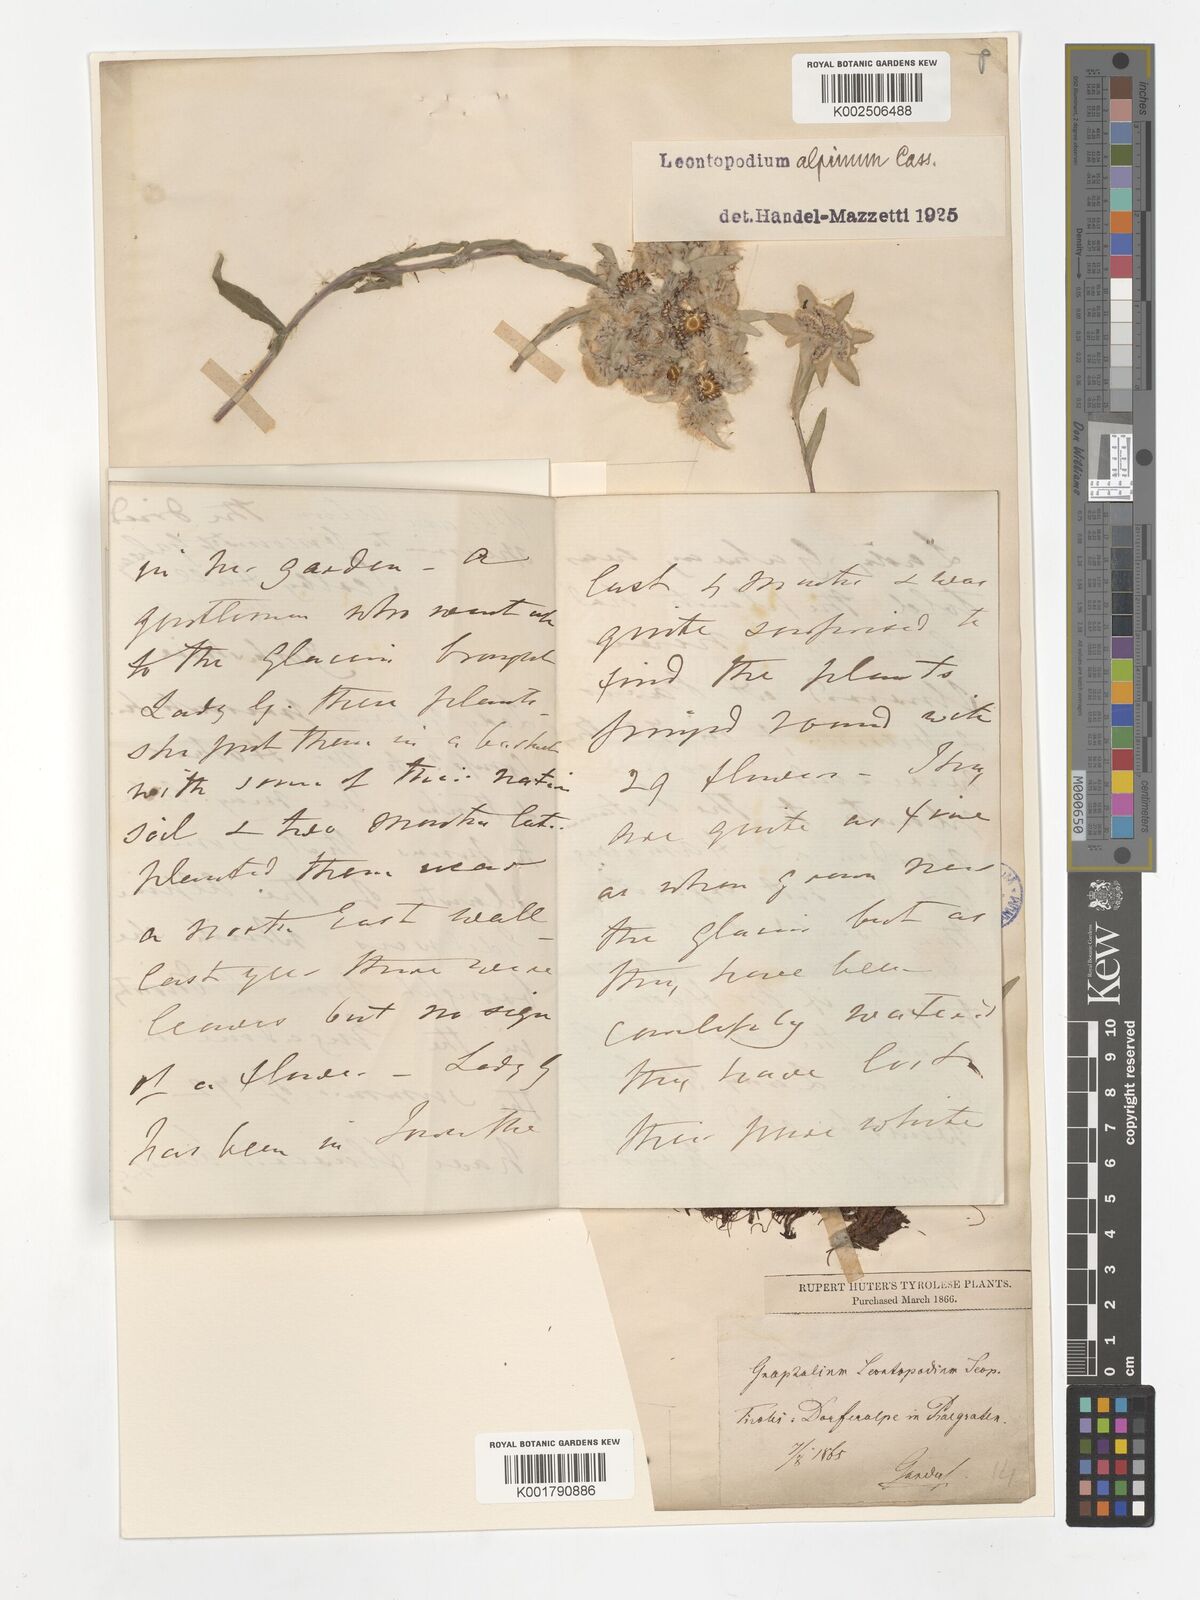 ROYAL BOTANIC GARDENS KEW
K002506488
Leontopodium alpinum Cass.
det. Handel-Mazzetti 1925
in her garden - a
gentleman who went up
to the Glacier brought
Lady G. these plants
she put them in a basket
with some of their native
soil & two months later
planted them near
a North East wall -
last year there were
leaves but no sign
of a flower - Lady G
has been in Town the
last 4 months & was
quite surprised to
find the plants
fringed round with
29 flowers - They
are quite as fine
as when grown near
the glacier but as
they have been
carefully watered
they have lost
their pure white
RUPERT HUTER'S TYROLESE PLANTS.
Purchased March 1866.
Gnaphalium Leontopodium Scop.
Tirolis: Dorferalpe in Praegraten.
7/8 1865
Gander
14
ROYAL BOTANIC GARDENS KEW
K001790886
inches
centimeters
Don Williams
M0000650
Kew
Royal Botanic Gardens
copyright reserved
0 1 2 3 4 5 6 7 8 9 10
cm